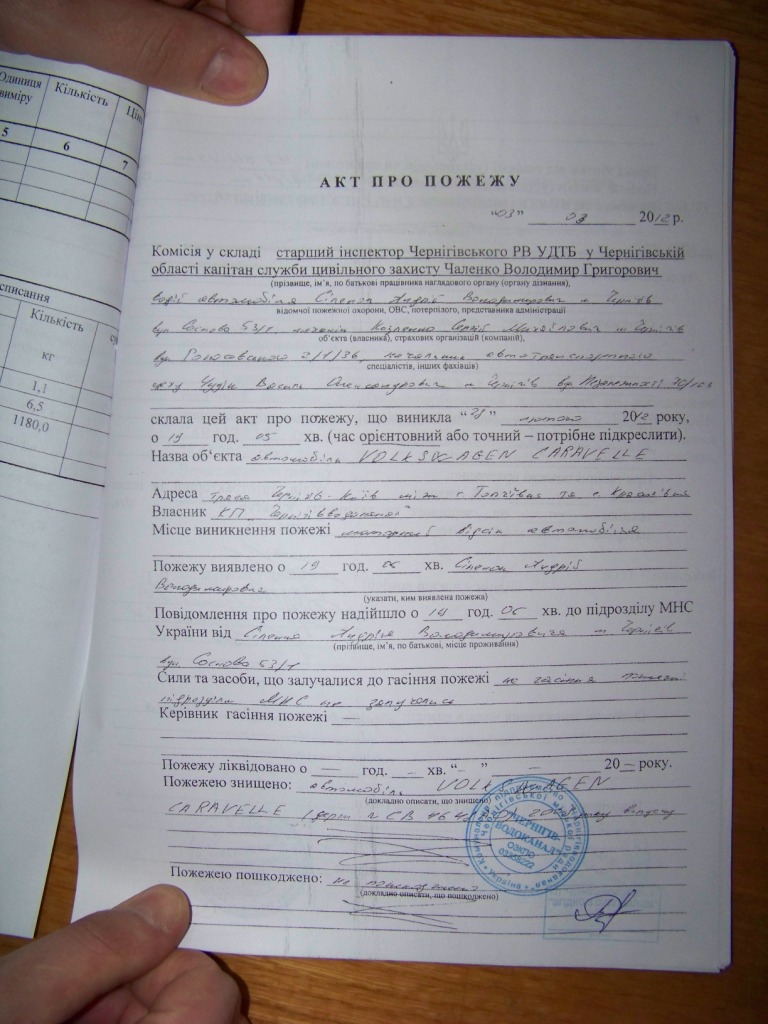 Одиниця виміру
Кількість
5
6
7
списання
Кількість
кг
1,1
6,5
1180,0
АКТ ПРО ПОЖЕЖУ
"03" 03 2012 р.
Комісія у складі старший інспектор Чернігівського РВ УДТБ у Чернігівській
області капітан служби цивільного захисту Чаленко Володимир Григорович
(прізвище, ім'я, по батькові працівника наглядового органу (органу дізнання),
водій автомобіля Андрій Володимирович м Чернігів
відомчої пожежної охорони, ОВС, потерпілого, представника адміністрації
вул Соснова 53/1 Козленко Сергій Михайлович м Чернігів
об'єкта (власника), страхових організацій (компаній),
вул 2/1/36, начальник автотранспортного
спеціалістів, інших фахівців)
цеху Чудін Василь Олександрович м Чернігів вул Незалежності
склала цей акт про пожежу, що виникла " " лютого 2012 року,
о 19 год. 05 хв. (час орієнтовний або точний – потрібне підкреслити).
Назва об'єкта автомобіль VOLKSWAGEN CARAVELLE
Адреса траса Чернігів-Київ між с та с
Власник КП "Чернігівводоканал"
Місце виникнення пожежі моторний відсік автомобіля
Пожежу виявлено о 19 год. 06 хв. Андрій
Володимирович
(указати, ким виявлена пожежа)
Повідомлення про пожежу надійшло о год. 06 хв. до підрозділу МНС
України від Андрія Володимировича м Чернігів
(прізвище, ім'я, по батькові, місце проживання)
вул. Соснова 53/1
Сили та засоби, що залучалися до гасіння пожежі на гасіння пожежі
підрозділи МНС не залучались
Керівник гасіння пожежі —
Пожежу ліквідовано о — год. – хв. "– " – 20 – року.
Пожежею знищено: автомобіль VOLKSWAGEN
(докладно описати, що знищено)
CARAVELLE випуску
ЧЕРНІГІВ-
ВОДОКАНАЛ
Україна
Пожежею пошкоджено: не пошкоджено
(докладно описати, що пошкоджено)